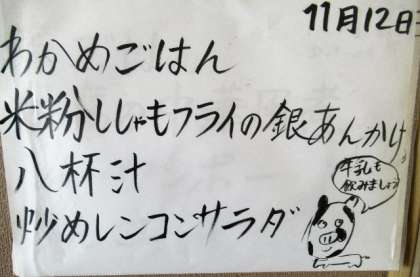 11月12日
わかめごはん
米粉ししゃもフライの銀あんかけ
八杯汁
炒めレンコンサラダ
牛乳も
飲みましょう